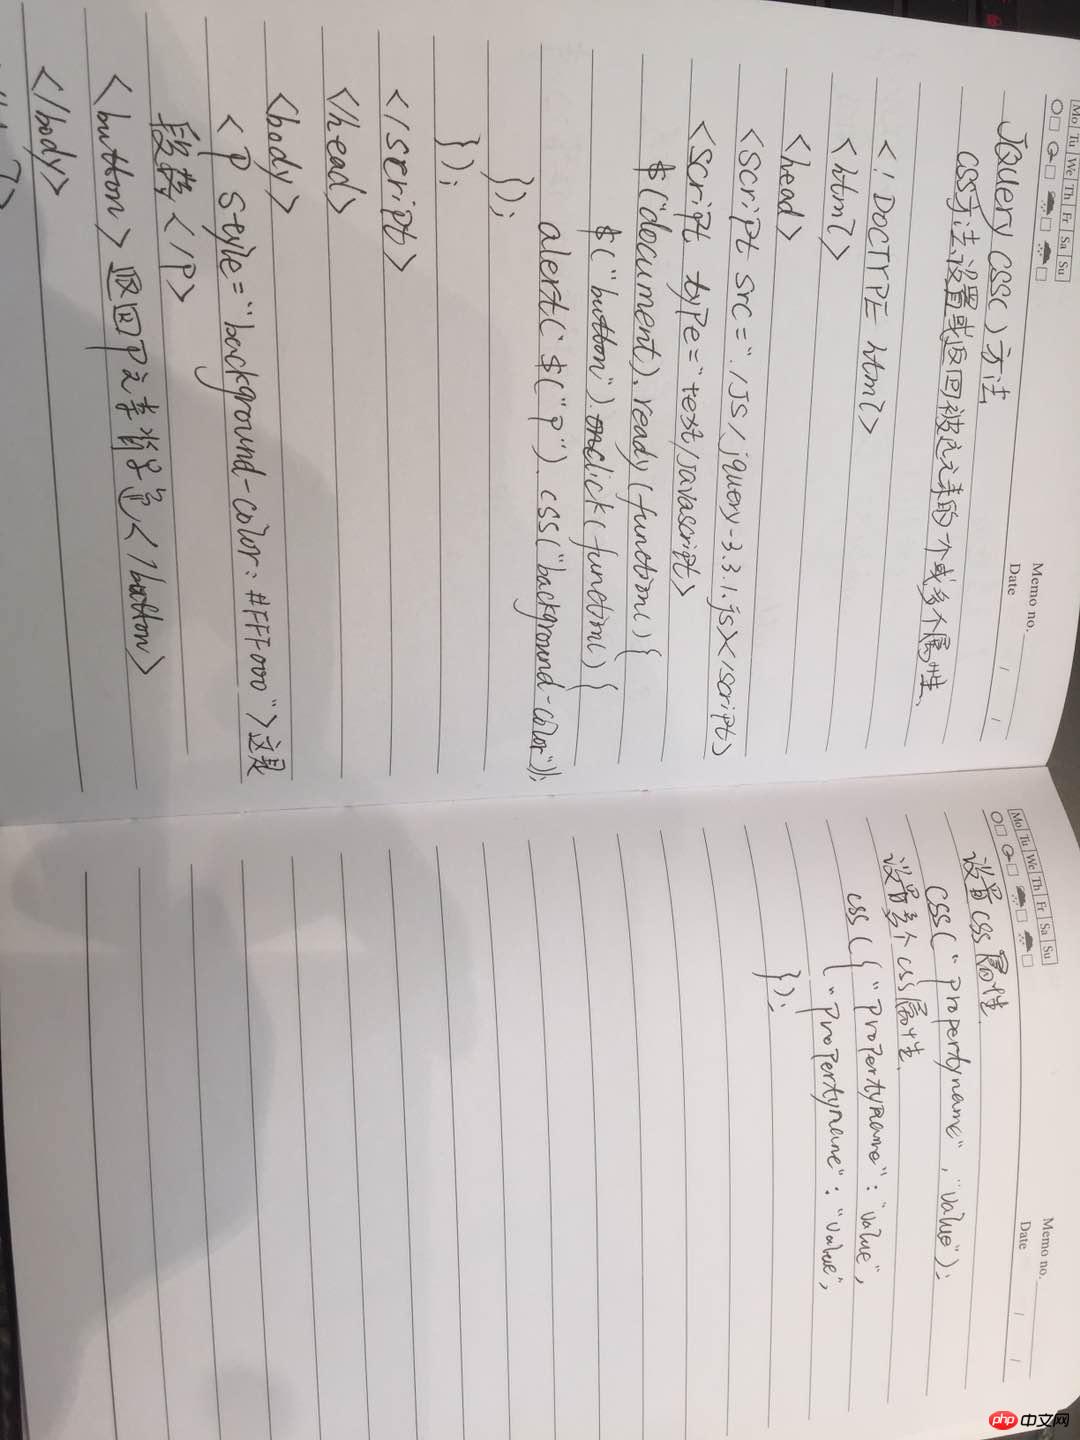 Mo Tu We Th Fr Sa Su
Memo no.
Date / /
JQuery CSS()方法
CSS方法设置或返回被选元素的一个或多个属性.
<!DOCTYPE html>
<html>
<head>
<script src="./JS/jquery-3.3.1.js></script>
<script type="text/javascript>
$("document).ready(function(){
$("button").click(function(){
alert($("P").css("background-color"));
});
});
</script>
</head>
<body>
<P style="background-color:#FFF000">这是
段落</P>
<button>返回P元素背景色</button>
</body>
Mo Tu We Th Fr Sa Su
Memo no.
Date / /
设置CSS属性.
CSS("propertyname","value");
设置多个CSS属性.
css({"propertyname":"value",
"propertyname":"value",
});
php中文网